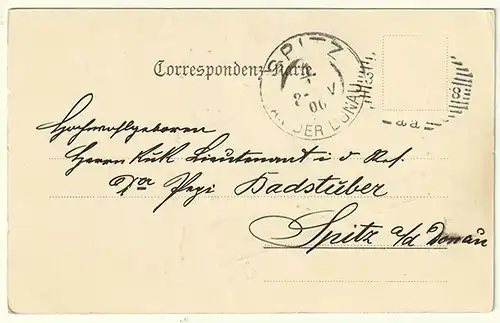 Correspondenz-Karte.
SPITZ
AN DER DONAU
Hochwohlgeboren
Herrn KuK Lieutenant i d Res.
Dor Pepi Badstuber
Spitz a/d Donau